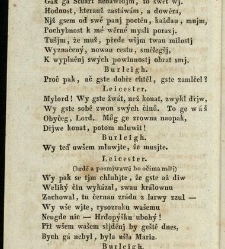 Hodnost, kterauž zastáwám, a dowěra,
Njž gsem od swé panj poctěn, každau, mnjm,
Pochybnost k mé wěrné mysli porazj.
Tušjm, že muž, přede wším twau milostj
Wyznačený, nowau cestu, smělegšj,
K wyplněnj swých powinnostj obral smj.
Burleigh.
Proč pak, ač gste dobře řídil, gste zamlčel?
Leicester.
Mylord! Wy gste žwát, než konat, zwykl dřjw,
Wy gste sobě zwon swých činů. To ge wáš
Obyčeg, Lord. Můg ge zrowna naopak,
Dřjwe konat, potom mluwit!
Burleigh.
Wy teď owšem mluwjte, že musjte.
Leicester.
(hrdě a posmjwawě ho očima měřj)
Wy pak se tjm chlubjte, že gste až diw
Weliký čin wykázal, swau králownu
Zachowal, tu černau zrádu z larwy zzul —
Wy wše wjte, bysozraku wašemu
Neugde nic — Hrdopyšku ubohý!
Při wšem wašem sljděnj by geště dnes,
Bych gá nebyl, byla wůla Maria.
Burleigh.